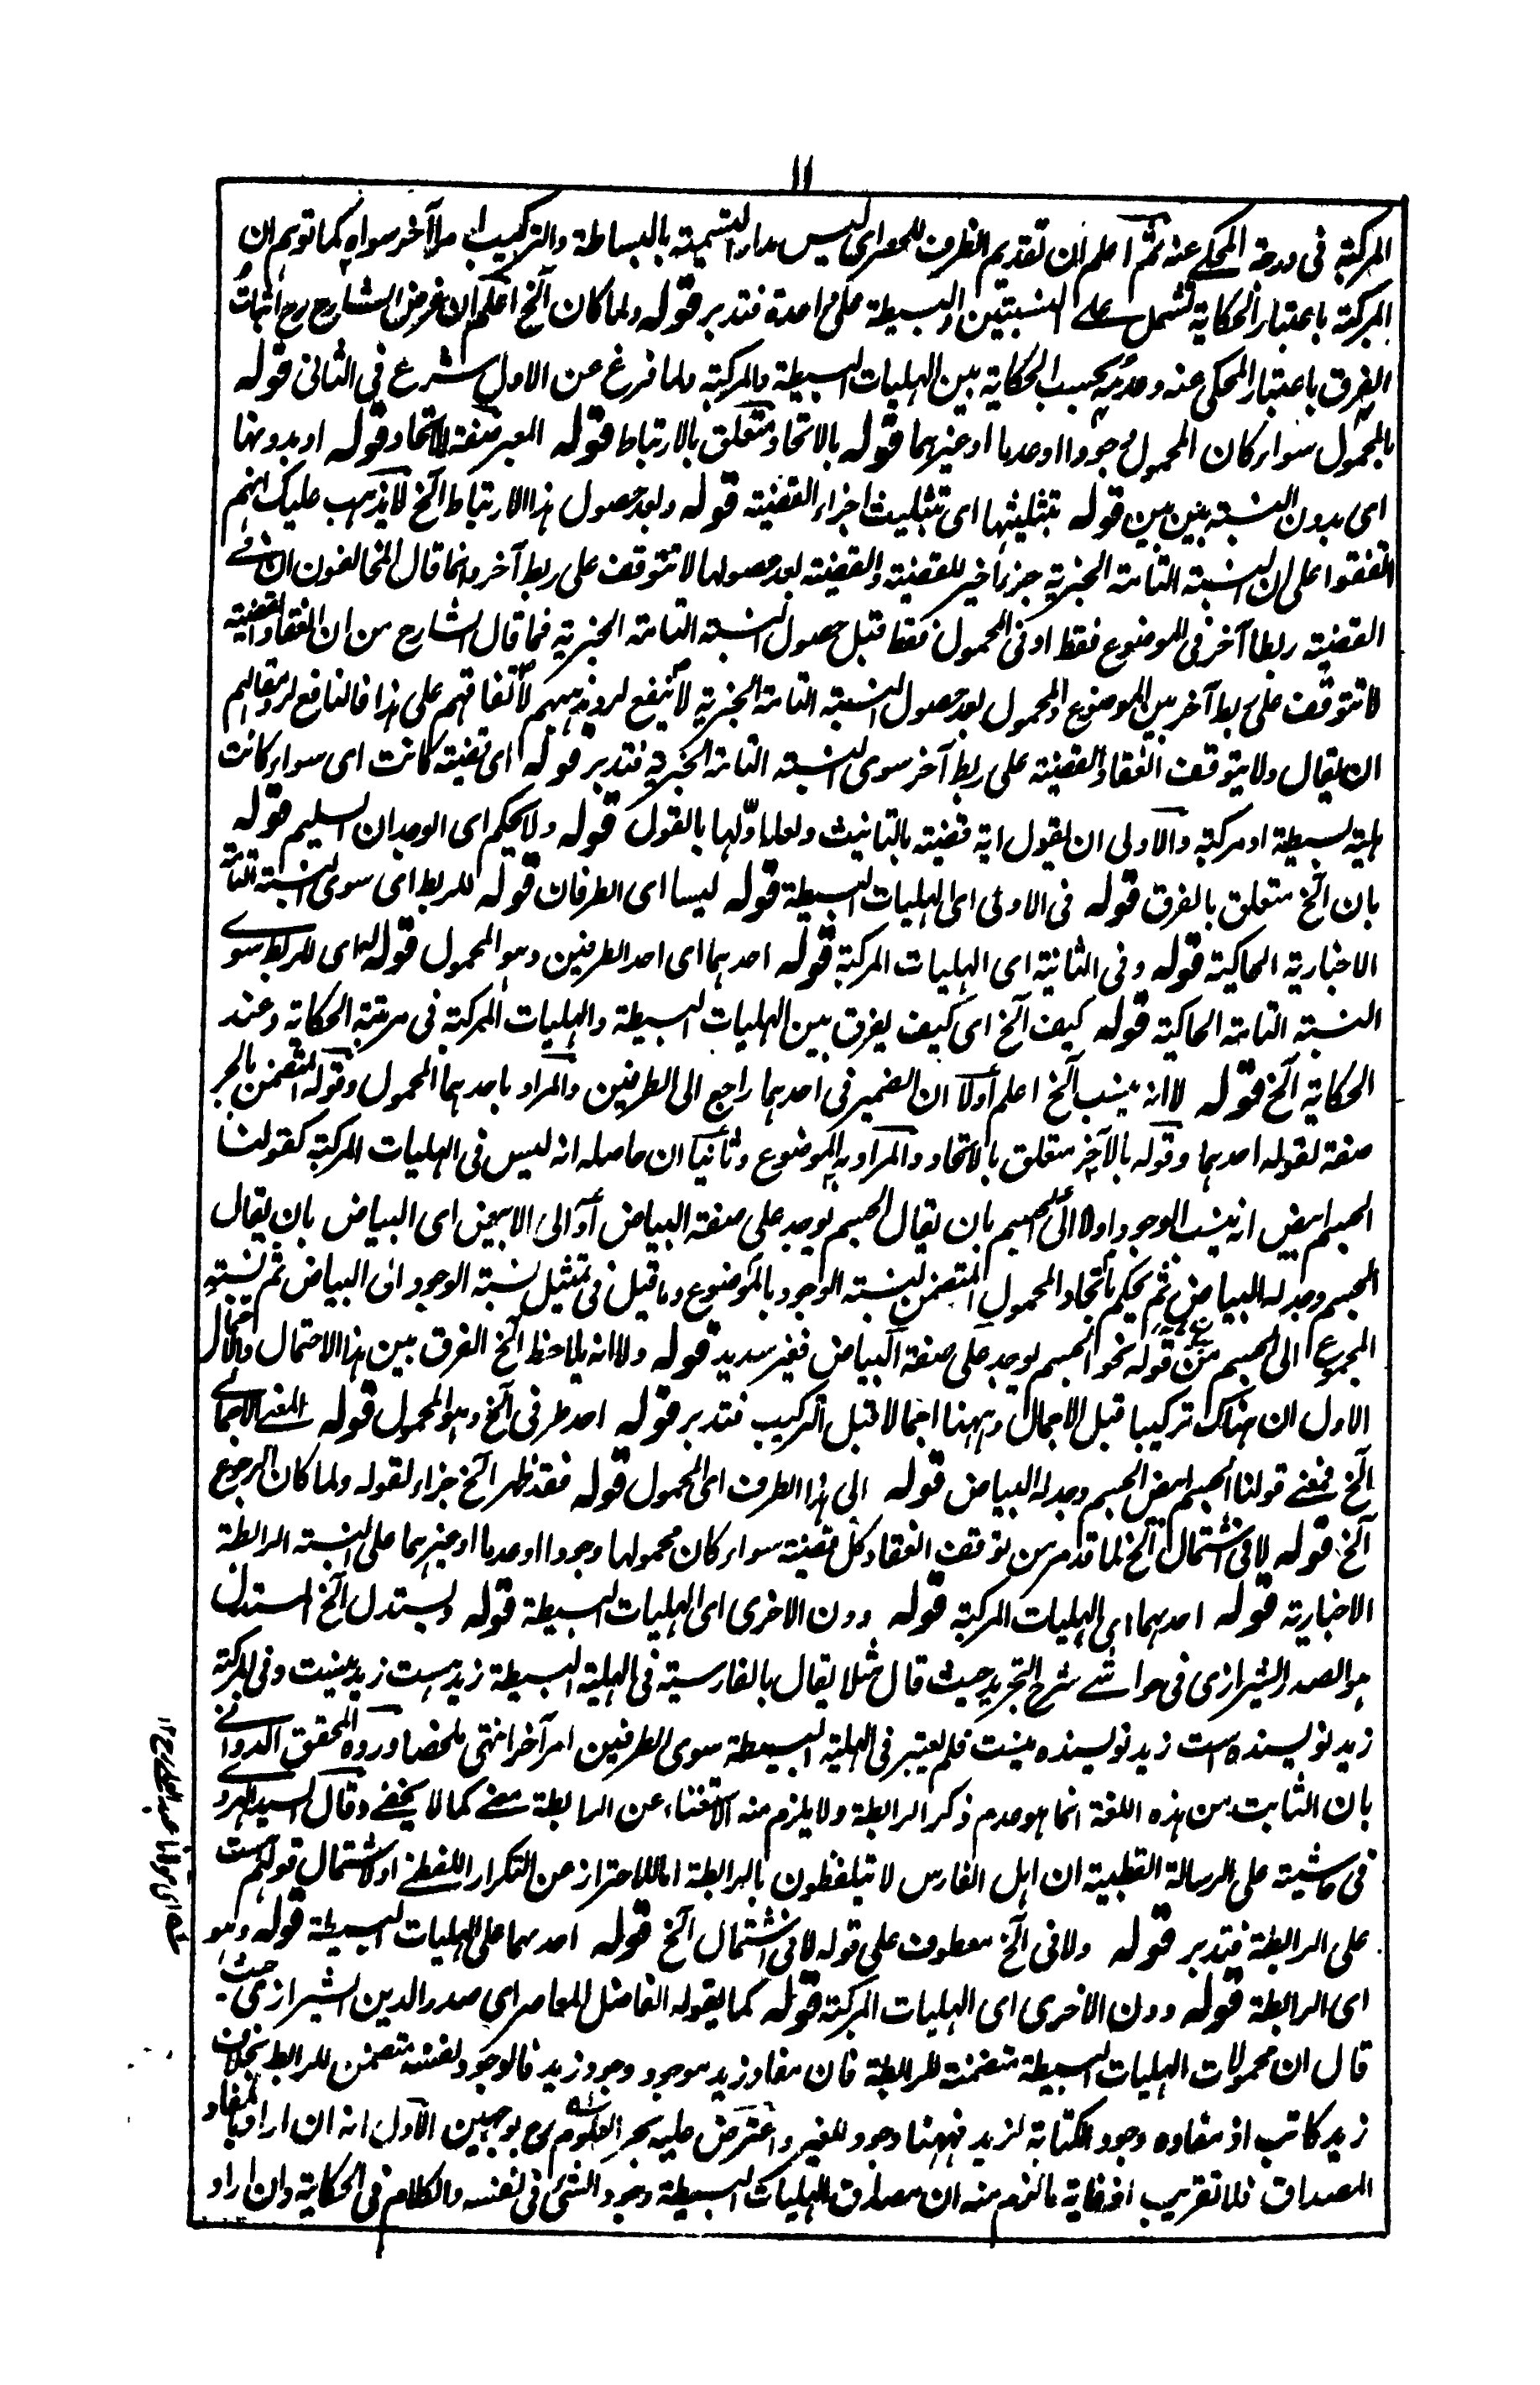 ١١
المركبة فى درجة المحكى عنه ثم اعلم ان تقديم الظرف للحصر اى ليس مدار التسمية بالبساطة والتركيب امرا آخر سواه كما توهم ان
المركبة باعتبار الحكاية تشمل على النسبتين والبسيطة على واحدة فتدبر قوله ولما كان الخ اعلم ان غرض الشارح رح اثبات
الفرق باعتبار المحكى عنه وعدمه بحسب الحكاية بين الهليات البسيطة والمركبة ولما فرغ عن الاول شرع فى الثانى قوله
بالمحمول سواء كان المحمول وجودا او عدما او غيرهما قوله بالاتحاد متعلق بالارتباط قوله المعبر صفة للاتحاد قوله او بدونها
اى بدون النسبة بين بين قوله بتثليثها اى بتثليث اجزاء القضية قوله وبعد حصول هذا الارتباط الخ لا يذهب عليك انهم
اتفقوا على ان النسبة التامة الخبرية جزء اخير للقضية والقضية بعد حصولها لا تتوقف على ربط آخر وانما قال المخالفون ان فى
القضية ربطا آخر فى الموضوع فقط او فى المحمول فقط قبل حصول النسبة التامة الخبرية فما قال الشارح من ان انعقاد القضية
لا تتوقف على ربط آخر بين الموضوع والمحمول بعد حصول النسبة التامة الخبرية لا ينفع لرد مذهبهم لاتفاقهم على هذا فالنافع لرد مقالهم
ان يقال ولا يتوقف انعقاد القضية على ربط آخر سوى النسبة التامة الخبرية فتدبر قوله اى قضية كانت اى سواء كانت
هلية بسيطة او مركبة والاولى ان يقول اية قضية بالتانيث ولعله اولها بالقول قوله ولا يحكم اى الوجدان السليم قوله
بان الخ متعلق بالفرق قوله فى الاولى اى الهليات البسيطة قوله ليسا اى الطرفان قوله للربط اى سوى النسبة التامة
الاخبارية الحاكية قوله وفى الثانية اى الهليات المركبة قوله احدهما اى احد الطرفين وهو المحمول قوله له اى للربط سوى
النسبة التامة الحاكية قوله كيف الخ اى كيف يفرق بين الهليات البسيطة والهليات المركبة فى مرتبة الحكاية وعند
الحكاية الخ قوله لا انه ينسب الخ اعلم اولا ان الضمير فى احدهما راجع الى الطرفين والمراد باحدهما المحمول وقوله المتضمن بالجر
صفة لقوله احدهما وقوله بالآخر متعلق بالاتحاد والمراد به الموضوع وثانيا ان حاصله انه ليس فى الهليات المركبة كقولنا
الجسم ابيض انه ينسب الوجود اولا الى الجسم بان يقال الجسم يوجد على صفة البياض او الى الابيض اى البياض بان يقال
الجسم وجد له البياض ثم يحكم باتحاد المحمول المتضمن لنسبة الوجود بالموضوع وما قيل فى تمثيل نسبة الوجود الى البياض ثم نسبة
المجموع الى الجسم من قوله نحو الجسم يوجد على صفة البياض فغير سديد قوله ولا انه يلاحظ الخ الفرق بين هذا الاحتمال والاحتمال
الاول ان هناك تركيبا قبل الاجمال وههنا اجمالا قبل التركيب فتدبر قوله احد طرفى الخ وهو المحمول قوله المعنى الاجمالى
الخ فمعنى قولنا الجسم ابيض الجسم وجد له البياض قوله الى هذا الطرف اى المحمول قوله فقد ظهر الخ جزاء لقوله ولما كان المرجوع
الخ قوله لا فى اشتمال الخ لما قد مر من توقف انعقاد كل قضية سواء كان محمولها وجودا او عدما او غيرهما على النسبة الرابطة
الاخبارية قوله احدهما اى الهليات المركبة قوله دون الاخرى اى الهليات البسيطة قوله ويستدل الخ المستدل
هو الصدر الشيرازى فى حواشى شرح التجريد حيث قال مثلا يقال بالفارسية فى الهلية البسيطة زيد هست زيد نيست وفى المركبة
زيد نويسنده است زيد نويسنده نيست فلم يعتبر فى الهلية البسيطة سوى الطرفين امر آخر انتهى ملخصا ورده المحقق الدوانى
بان الثابت من هذه اللغة انما هو عدم ذكر الرابطة ولا يلزم منه الاستغناء عن الرابطة معنى كما لا يخفى وقال السيد الهروى
فى حاشيته على الرسالة القطبية ان اهل الفارس لا يتلفظون بالرابطة اما للاحتراز عن التكرار اللفظى او لاشتمال قولهم هست
على الرابطة فتدبر قوله ولا فى الخ معطوف على قوله لا فى اشتمال الخ قوله احدهما على الهليات البسيطة قوله وهو
اى الرابطة قوله دون الاخرى اى الهليات المركبة قوله كما يقوله الفاضل المعاصر اى صدر الدين الشيرازى حيث
قال ان محمولات الهليات البسيطة متضمنة للرابطة فان مفاد زيد موجود وجود زيد فالوجود بنفسه متضمن للرابط بخلاف
زيد كاتب اذ مفاده وجود الكتابة لزيد فههنا وجود للغير واعترض عليه بحر العلوم رح بوجهين الاول انه ان اراد بالمفاد
المصداق فلا تقريب اذ غاية ما لزم منه ان مصداق الهليات البسيطة وجود الشئ فى نفسه والكلام فى الحكاية وان اراد